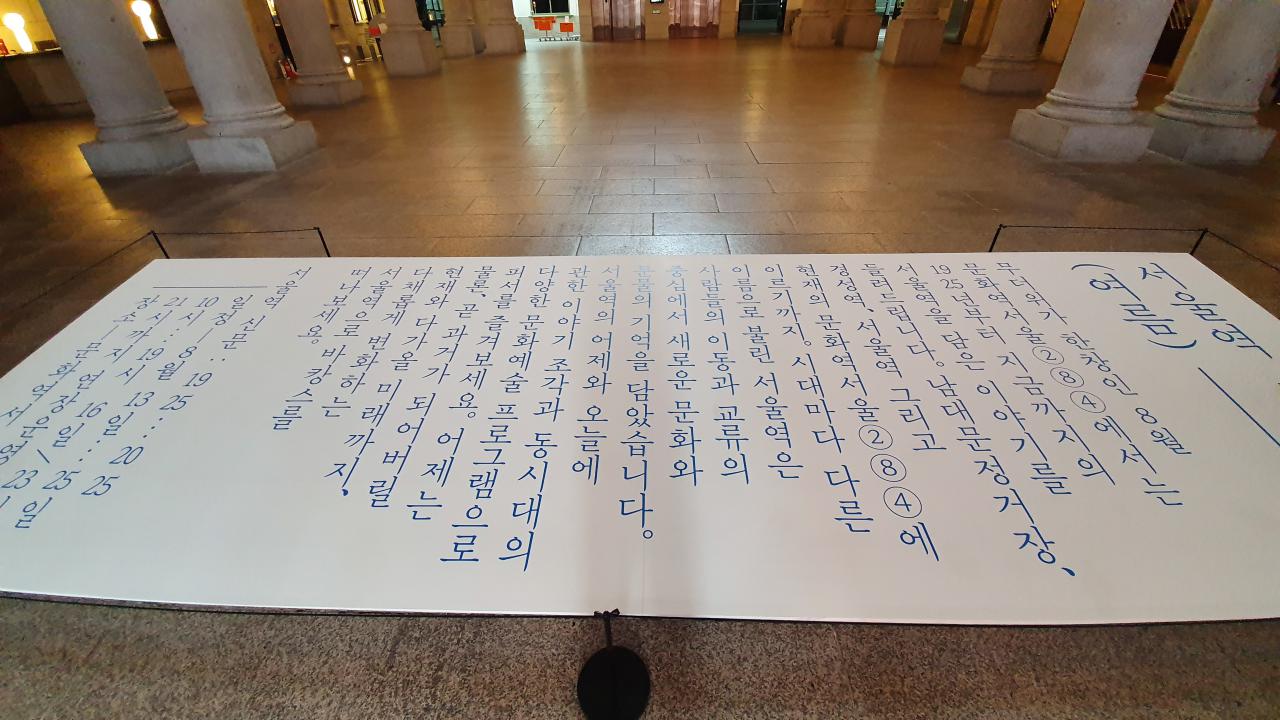 서울역
(여름)
무더위가 한창인 8월
문화역서울②⑧④에서는
1925년부터 지금까지의
서울역을 담은 이야기를
들려드립니다. 남대문정거장,
경성역, 서울역 그리고
현재의 문화역서울②⑧④에
이르기까지, 시대마다 다른
이름으로 불린 서울역은
사람들의 이동과 교류의
중심에서 새로운 문화와
문물의 기억을 담았습니다.
서울역의 어제와 오늘에
관한 이야기 조각과 동시대의
다양한 문화예술 프로그램으로
피서를 즐겨보세요. 어제는
물론, 곧 과거가 되어버릴
현재와 다가올 미래까지,
다채롭게 변화하는
서울역으로 바캉스를
떠나보세요.
장소—문화역서울